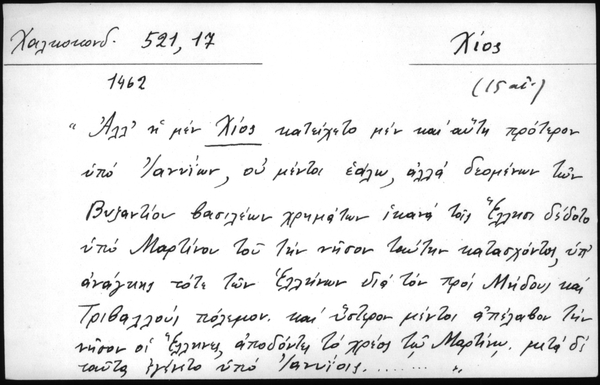 Χαλκοκονδ. 521, 17 Χίος
1462 (15 αἰ.)
"Ἀλλ' ἡ μέν Χίος κατείχετο μέν καί αὕτη πρότερον
ὑπό Ἰαννίων, οὐ μέντοι ἑάλω, ἀλλά δεομένων τῶν
Βυζαντίου βασιλέων χρημάτων ἱκανά τοῖς Ἕλλησι δέδοτο
ὑπό Μαρτίνου τοῦ τήν νῆσον ταύτην κατασχόντος, ὑπ'
ἀνάγκης τότε τῶν Ἑλλήνων διά τόν πρός Μήδους καί
Τριβαλλούς πόλεμον. καί ὕστερον μέντοι ἀπέλαβον τήν
νῆσον οἱ Ἕλληνες, ἀποδόντες τό χρέος τῷ Μαρτίνῳ. μετά δέ
ταῦτα ἐγένετο ὑπό Ἰαννίοις........ "